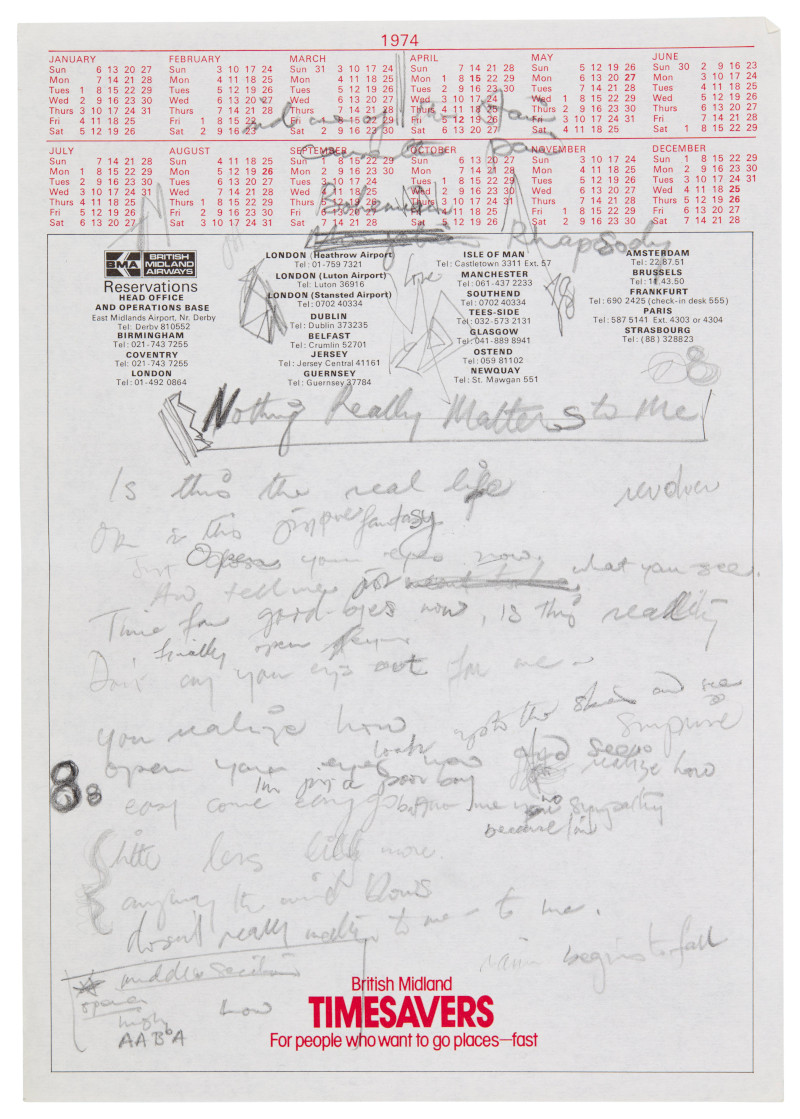 1974
JANUARY
Sun 6 13 20 27
Mon 7 14 21 28
Tues 1 8 15 22 29
Wed 2 9 16 23 30
Thurs 3 10 17 24 31
Fri 4 11 18 25
Sat 5 12 19 26
FEBRUARY
Sun 3 10 17 24
Mon 4 11 18 25
Tues 5 12 19 26
Wed 6 13 20 27
Thurs 7 14 21 28
Fri 1 8 15 22
Sat 2 9 16 23
MARCH
Sun 31 3 10 17 24
Mon 4 11 18 25
Tues 5 12 19 26
Wed 6 13 20 27
Thurs 7 14 21 28
Fri 1 8 15 22
Sat 2 9 16 23 30
APRIL
Sun 7 14 21 28
Mon 1 8 15 22 29
Tues 2 9 16 23 30
Wed 3 10 17 24
Thurs 4 11 18 25
Fri 5 12 19 26
Sat 6 13 20 27
MAY
Sun 5 12 19 26
Mon 6 13 20 27
Tues 7 14 21 28
Wed 1 8 15 22 29
Thurs 2 9 16 23 30
Fri 3 10 17 24 31
Sat 4 11 18 25
JUNE
Sun 30 2 9 16 23
Mon 3 10 17 24
Tues 4 11 18 25
Wed 5 12 19 26
Thurs 6 13 20 27
Fri 7 14 21 28
Sat 1 8 15 22 29
JULY
Sun 7 14 21 28
Mon 1 8 15 22 29
Tues 2 9 16 23 30
Wed 3 10 17 24 31
Thurs 4 11 18 25
Fri 5 12 19 26
Sat 6 13 20 27
AUGUST
Sun 4 11 18 25
Mon 5 12 19 26
Tues 6 13 20 27
Wed 7 14 21 28
Thurs 1 8 15 22 29
Fri 2 9 16 23 30
Sat 3 10 17 24 31
SEPTEMBER
Sun 1 8 15 22 29
Mon 2 9 16 23 30
Tues 3 10 17 24
Wed 4 11 18 25
Thurs 5 12 19 26
Fri 6 13 20 27
Sat 7 14 21 28
OCTOBER
Sun 6 13 20 27
Mon 7 14 21 28
Tues 1 8 15 22 29
Wed 2 9 16 23 30
Thurs 3 10 17 24 31
Fri 4 11 18 25
Sat 5 12 19 26
NOVEMBER
Sun 3 10 17 24
Mon 4 11 18 25
Tues 5 12 19 26
Wed 6 13 20 27
Thurs 7 14 21 28
Fri 1 8 15 22 29
Sat 2 9 16 23 30
DECEMBER
Sun 1 8 15 22 29
Mon 2 9 16 23 30
Tues 3 10 17 24 31
Wed 4 11 18 25
Thurs 5 12 19 26
Fri 6 13 20 27
Sat 7 14 21 28
Bohemian
Rhapsody
BMA BRITISH MIDLAND AIRWAYS
Reservations
HEAD OFFICE
AND OPERATIONS BASE
East Midlands Airport, Nr. Derby
Tel: Derby 810552
BIRMINGHAM
Tel: 021-743 7255
COVENTRY
Tel: 021-743 7255
LONDON
Tel: 01-492 0864
LONDON (Heathrow Airport)
Tel: 01-759 7321
LONDON (Luton Airport)
Tel: Luton 36916
LONDON (Stansted Airport)
Tel: 0702 40334
DUBLIN
Tel: Dublin 373235
BELFAST
Tel: Crumlin 52701
JERSEY
Tel: Jersey Central 41161
GUERNSEY
Tel: Guernsey 37784
love
ISLE OF MAN
Tel: Castletown 3311 Ext. 57
MANCHESTER
Tel: 061-437 2233
SOUTHEND
Tel: 0702 40334
TEES-SIDE
Tel: 032-573 2131
GLASGOW
Tel: 041-889 8941
OSTEND
Tel: 059 81102
NEWQUAY
Tel: St. Mawgan 551
AMSTERDAM
Tel: 22.87.51
BRUSSELS
Tel: 11.43.50
FRANKFURT
Tel: 690 2425 (check-in desk 555)
PARIS
Tel: 587 5141 Ext. 4303 or 4304
STRASBOURG
Tel: (88) 328823
Nothing Really Matters to Me
Is this the real life revolver
Or is this just fantasy
Just Open your eyes now. what you see.
And tell me
Time for good-byes now, is this reality
finally open
Don't cry your eyes out for me
you realize how look up to the skies and see surprise
open your eyes now realize how
I'm just a poor boy
8 8
easy come easy go no sympathy
because I'm
little less little more.
anyway the wind blows
doesn't really matter to me - to me.
middle section begins to fall
opera
high low
AABA
British Midland
TIMESAVERS
For people who want to go places—fast